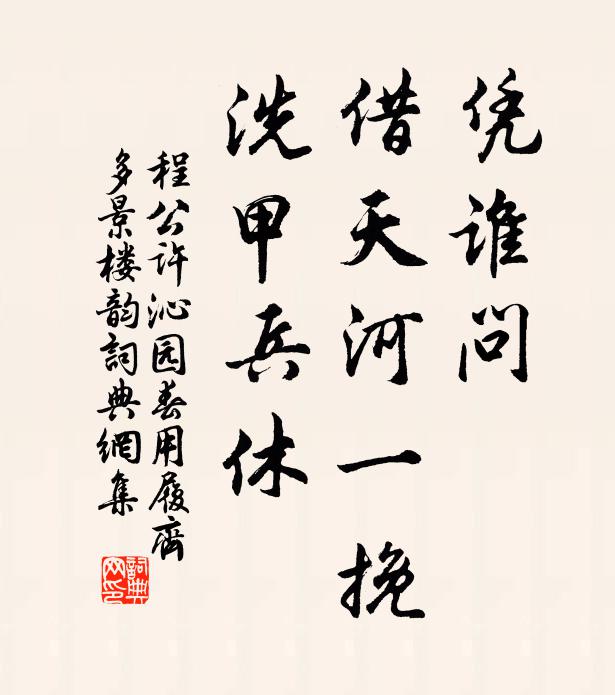 凭谁问
借天河一挽
洗甲兵休
程公许沁园春用履齋
多景楼韵詞典網集
詞典网印